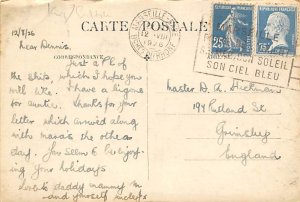 CARTE POSTALE
12/8/26
Dear Dennis,
CORRESPONDANCE
Just a P/C of
the ships, which I hope you
will like. I have a
for auntie. Thanks for your
letter which arrived along
with mama's the other
day. Jas Ellen & I enjoy-
ing your holidays
Love to daddy mammy
and yourself
12 VIII
1926
REPUBLIQUE FRANÇAISE
25
75
SON SOLEIL
SON CIEL BLEU
Master D. A.
194 Rutland St
Grimsby
England